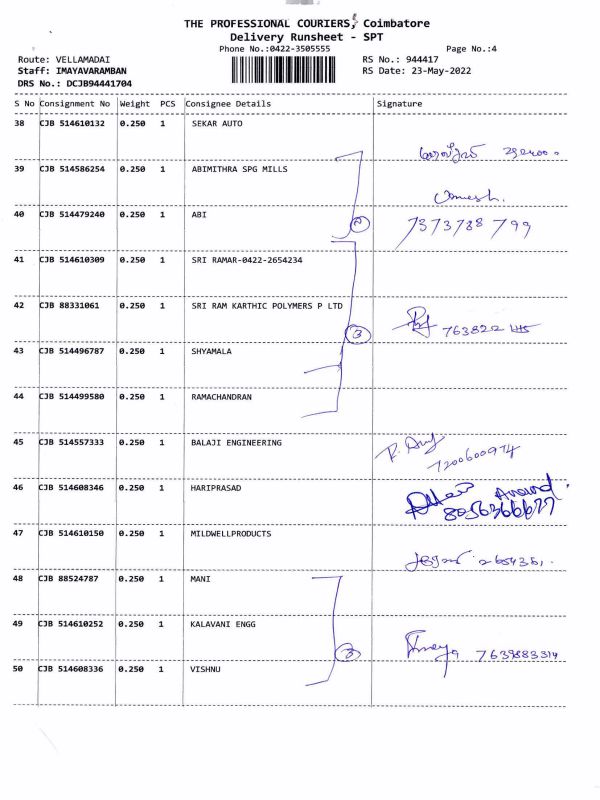 THE PROFESSIONAL COURIERS, Coimbatore
Delivery Runsheet - SPT
Phone No.:0422-3505555
Page No.:4
Route: VELLAMADAI
RS No.: 944417
Staff: IMAYAVARAMBAN
RS Date: 23-May-2022
DRS No.: DCJB94441704
S No Consignment No Weight PCS Consignee Details Signature
38 CJB 514610132 0.250 1 SEKAR AUTO
39 CJB 514586254 0.250 1 ABIMITHRA SPG MILLS
Umesh.
40 CJB 514479240 0.250 1 ABI
7373788 799
2
41 CJB 514610309 0.250 1 SRI RAMAR-0422-2654234
42 CJB 88331061 0.250 1 SRI RAM KARTHIC POLYMERS P LTD
3
43 CJB 514496787 0.250 1 SHYAMALA
44 CJB 514499580 0.250 1 RAMACHANDRAN
45 CJB 514557333 0.250 1 BALAJI ENGINEERING
7200600974
46 CJB 514608346 0.250 1 HARIPRASAD
Anand
8056366677
47 CJB 514610150 0.250 1 MILDWELLPRODUCTS
48 CJB 88524787 0.250 1 MANI
49 CJB 514610252 0.250 1 KALAVANI ENGG
3
7639883314
50 CJB 514608336 0.250 1 VISHNU